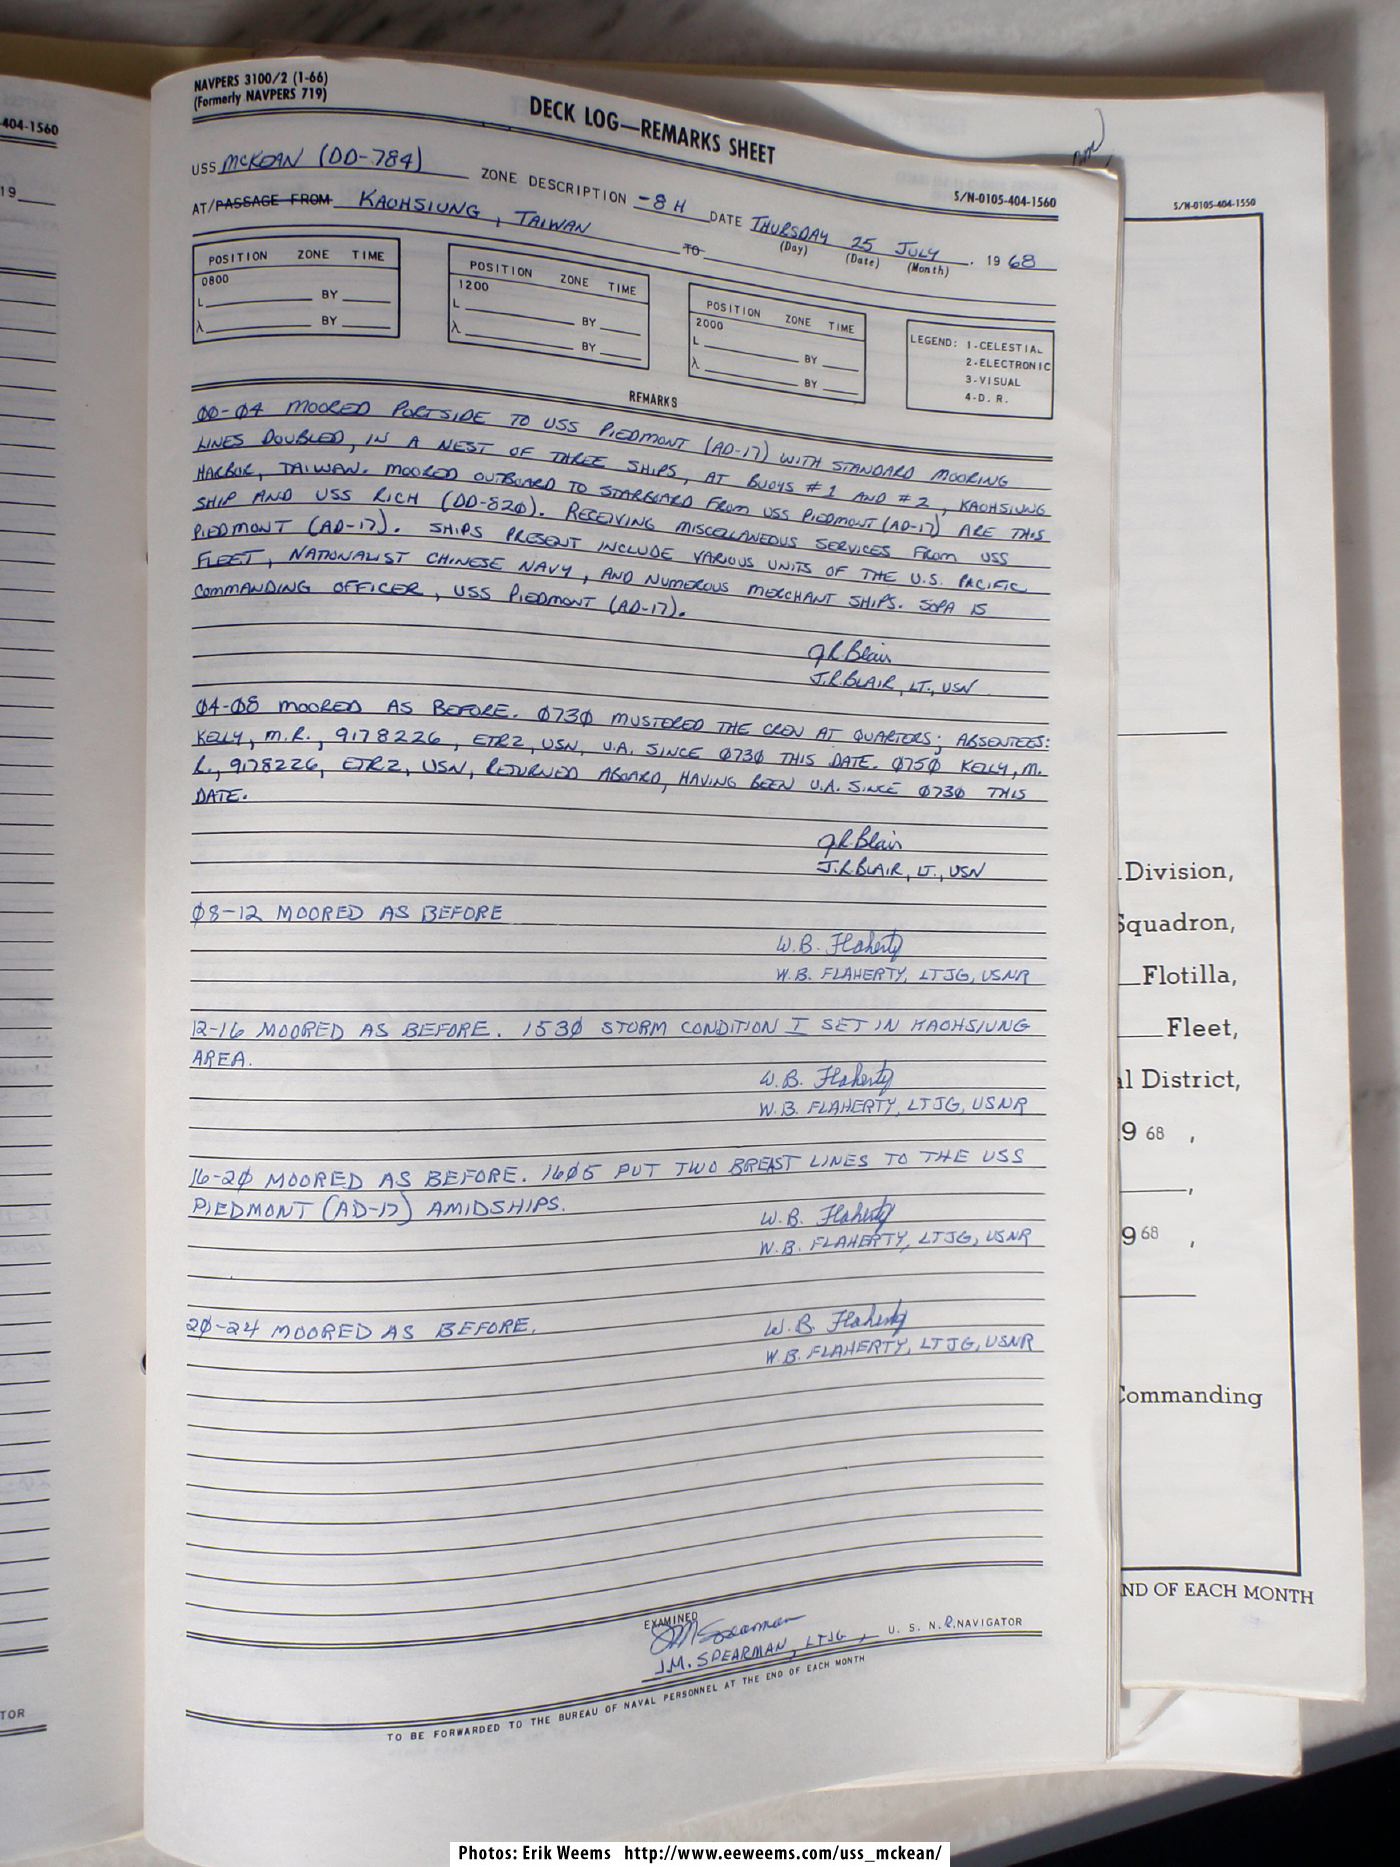 -404-1560
19
TOR
NAVPERS 3100/2 (1-66)
(Formerly NAVPERS 719)
DECK LOG—REMARKS SHEET
S/N-0105-404-1560
USS MCKEAN (DD-784) ZONE DESCRIPTION -8H DATE THURSDAY 25 JULY, 1968
(Day) (Date) (Month)
AT/PASSAGE FROM KAOHSIUNG, TAIWAN TO
POSITION ZONE TIME
0800
L BY
λ BY
POSITION ZONE TIME
1200
L BY
λ BY
POSITION ZONE TIME
2000
L BY
λ BY
LEGEND: 1-CELESTIAL
2-ELECTRONIC
3-VISUAL
4-D. R.
REMARKS
ØØ-Ø4 MOORED PORTSIDE TO USS PIEDMONT (AD-17) WITH STANDARD MOORING
LINES DOUBLED, IN A NEST OF THREE SHIPS, AT BUOYS #1 AND #2, KAOHSIUNG
HARBOR, TAIWAN. MOORED OUTBOARD TO STARBOARD FROM USS PIEDMONT (AD-17) ARE THIS
SHIP AND USS RICH (DD-82Ø). RECEIVING MISCELLANEOUS SERVICES FROM USS
PIEDMONT (AD-17). SHIPS PRESENT INCLUDE VARIOUS UNITS OF THE U.S. PACIFIC
FLEET, NATIONALIST CHINESE NAVY, AND NUMEROUS MERCHANT SHIPS. SOPA IS
COMMANDING OFFICER, USS PIEDMONT (AD-17).
J R Blair
J.R. BLAIR, LT., USN
Ø4-Ø8 MOORED AS BEFORE. Ø73Ø MUSTERED THE CREW AT QUARTERS; ABSENTEES:
KELLY, M.R., 9178226, ETR2, USN, U.A. SINCE Ø73Ø THIS DATE. Ø75Ø KELLY, M.
R., 9178226, ETR2, USN, RETURNED ABOARD, HAVING BEEN U.A. SINCE Ø73Ø THIS
DATE.
J R Blair
J.R. BLAIR, LT., USN
Ø8-12 MOORED AS BEFORE
W.B. Flaherty
W.B. FLAHERTY, LTJG, USNR
12-16 MOORED AS BEFORE. 153Ø STORM CONDITION I SET IN KAOHSIUNG
AREA.
W.B. Flaherty
W.B. FLAHERTY, LTJG, USNR
16-2Ø MOORED AS BEFORE. 16Ø5 PUT TWO BREAST LINES TO THE USS
PIEDMONT (AD-17) AMIDSHIPS.
W.B. Flaherty
W.B. FLAHERTY, LTJG, USNR
2Ø-24 MOORED AS BEFORE.
W.B. Flaherty
W.B. FLAHERTY, LTJG, USNR
EXAMINED
J M Spearman
J.M. SPEARMAN, LTJG, U. S. N.R. NAVIGATOR
TO BE FORWARDED TO THE BUREAU OF NAVAL PERSONNEL AT THE END OF EACH MONTH
S/N-0105-404-1550
Division,
Squadron,
Flotilla,
Fleet,
al District,
9 68 ,
,
9 68 ,
Commanding
ND OF EACH MONTH
Photos: Erik Weems http://www.eeweems.com/uss_mckean/